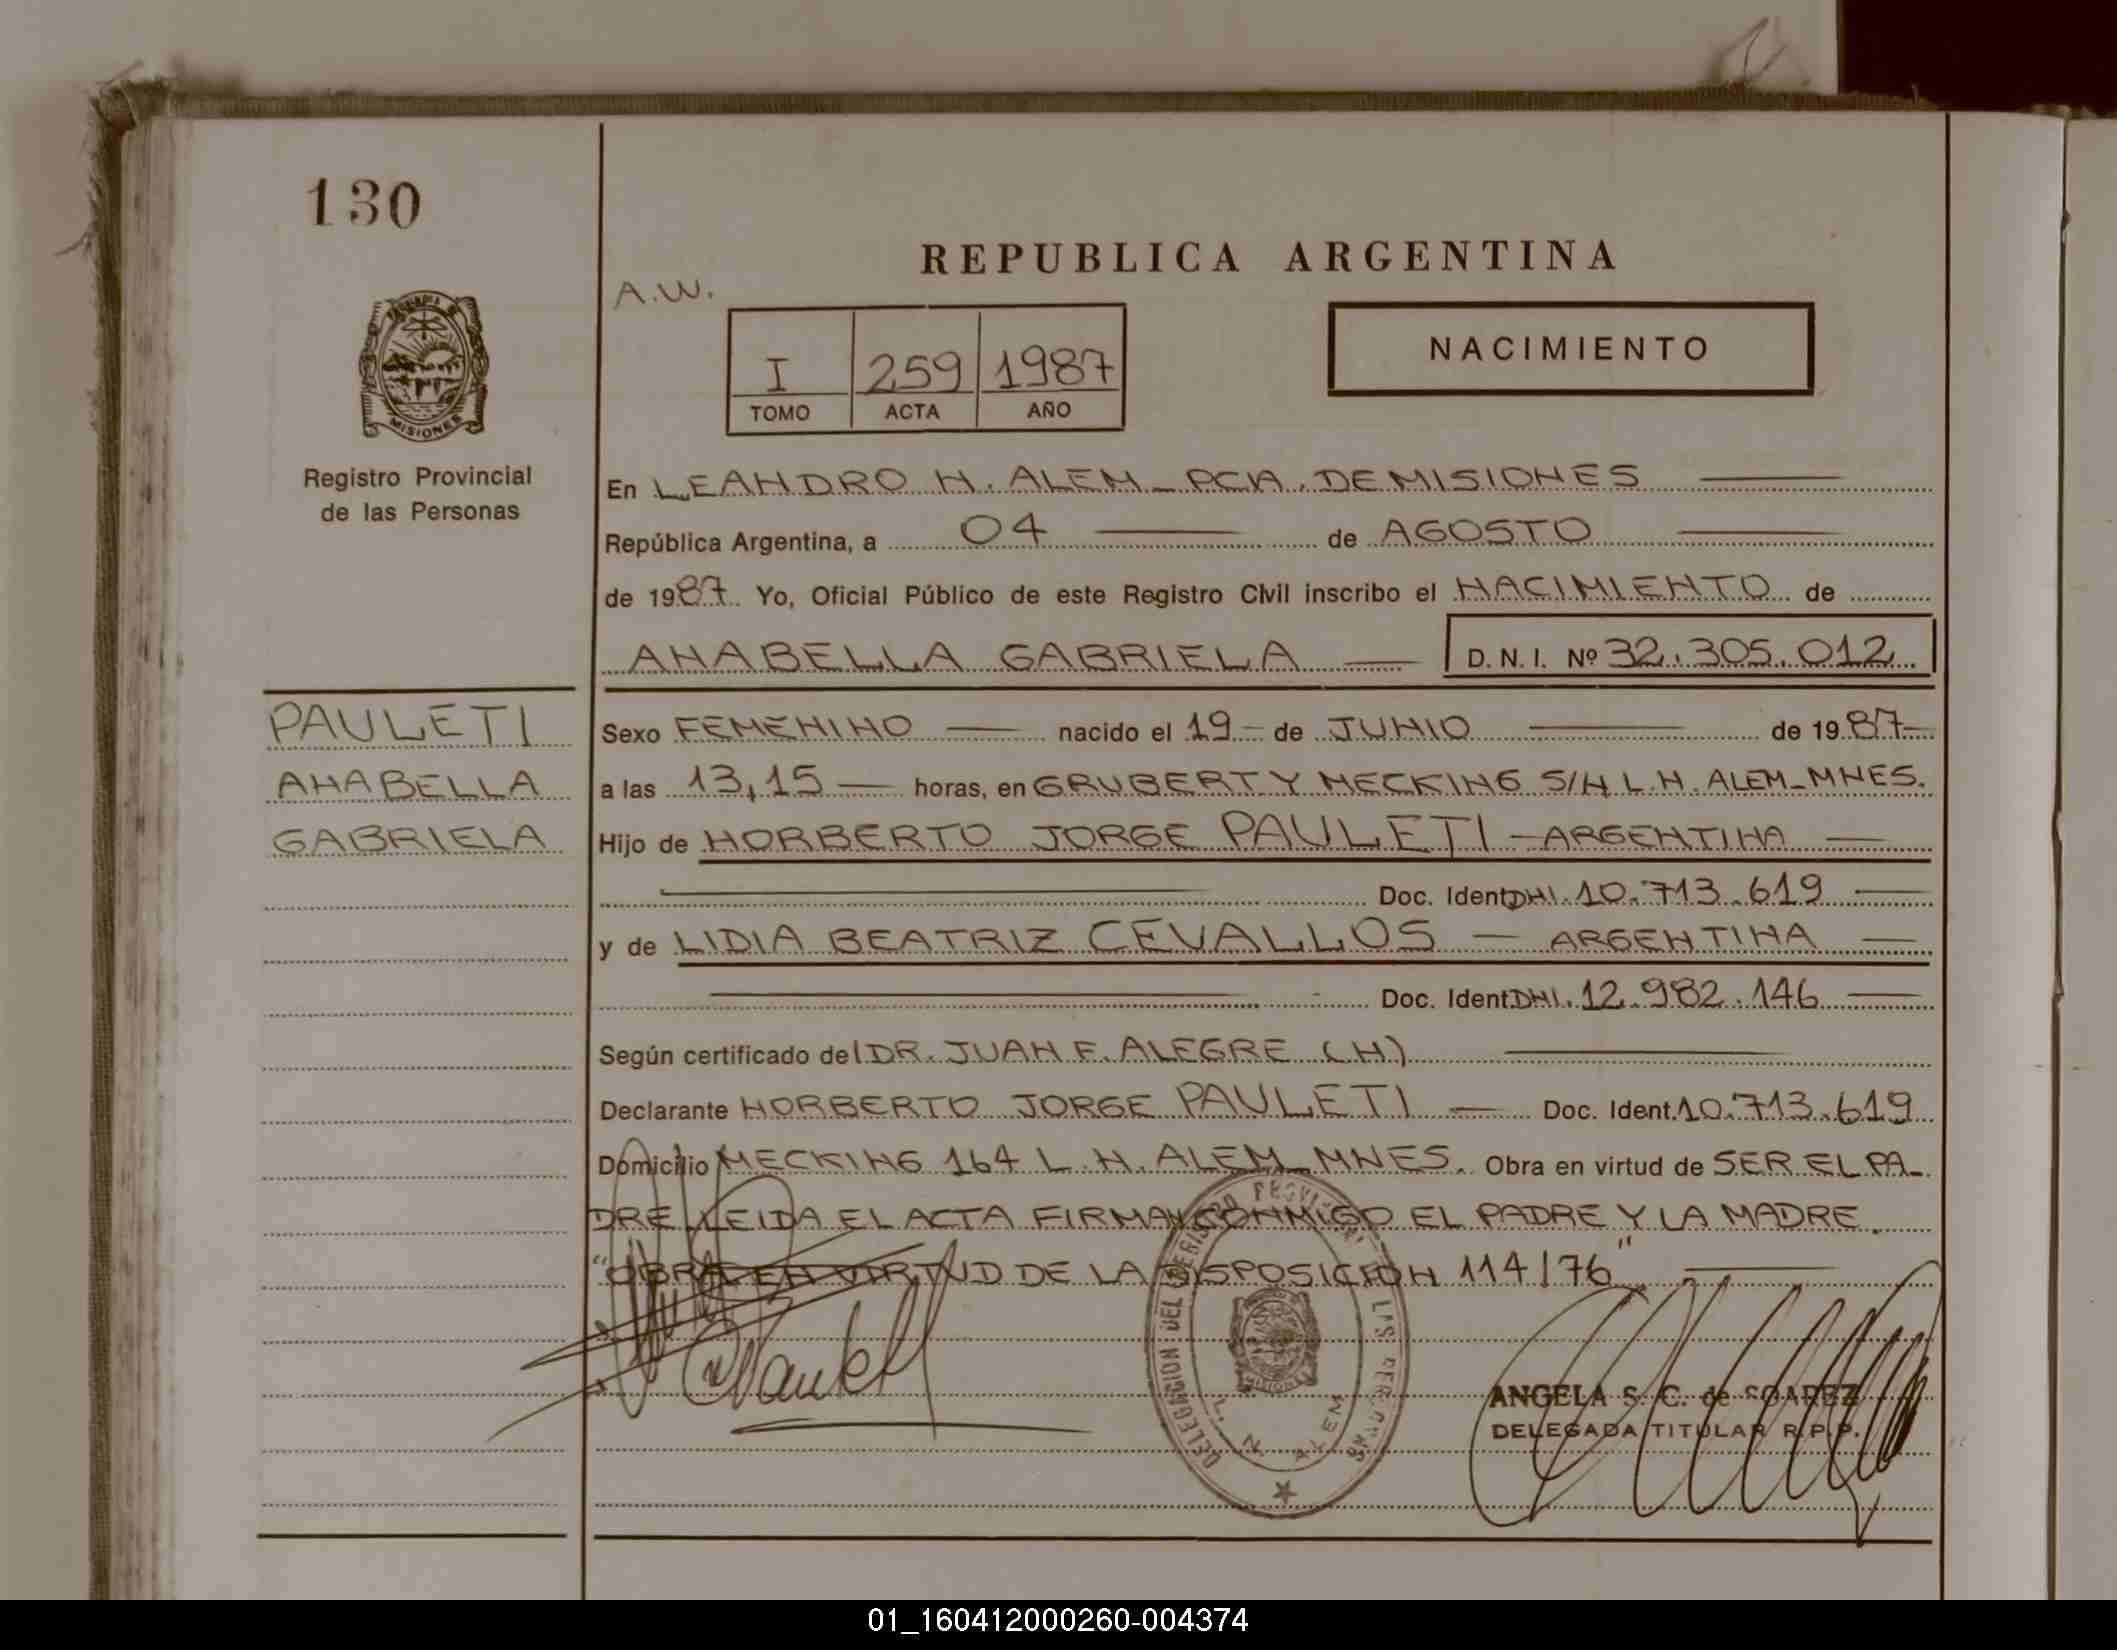 130
REPUBLICA ARGENTINA
A.W.
I 259 1987
TOMO ACTA AÑO
NACIMIENTO
MISIONES
Registro Provincial
de las Personas
En LEANDRO N. ALEM - PCIA. DE MISIONES
República Argentina, a 04 de AGOSTO
de 1987. Yo, Oficial Público de este Registro Civil inscribo el NACIMIENTO de
ANABELLA GABRIELA D. N. I. Nº 32.305.012
PAULETI
ANABELLA
GABRIELA
Sexo FEMENINO nacido el 19 - de JUNIO de 1987-
a las 13,15 horas, en GRUBERT Y MECKING S/N L.N. ALEM-MNES.
Hijo de NORBERTO JORGE PAULETI - ARGENTINA
Doc. Ident. DNI. 10.713.619
y de LIDIA BEATRIZ CEVALLOS - ARGENTINA
Doc. Ident. DNI. 12.982.146
Según certificado del DR. JUAN F. ALEGRE (H)
Declarante NORBERTO JORGE PAULETI Doc. Ident. 10.713.619
Domicilio MECKING 164 L.N. ALEM-MNES. Obra en virtud de SER EL PA-
DRE. LEIDA EL ACTA FIRMAN CONMIGO EL PADRE Y LA MADRE.
"OBRA EN VIRTUD DE LA DISPOSICION 114/76"
DELEGACION DEL REGISTRO PROVINCIAL DE LAS PERSONAS
MISIONES
L. N. ALEM
ANGELA S. C. de SOAREZ
DELEGADA TITULAR R.P.P.
01_160412000260-004374